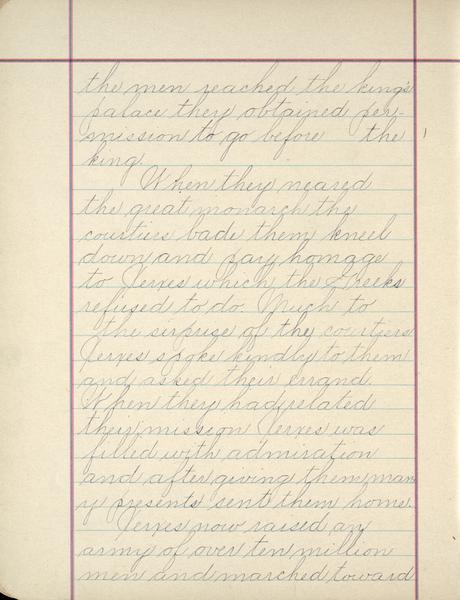 the men reached the king's
palace they obtained per-
mission to go before the
king.
When they neared
the great monarch the
courtiers bade them kneel
down and pay homage
to Xerxes which the Greeks
refused to do. Much to
the surprise of the courtiers
Xerxes spoke kindly to them
and asked their errand.
When they had related
their mission Xerxes was
filled with admiration
and after giving them man
y presents sent them home.
Xerxes now raised an
army of over ten million
men and marched toward